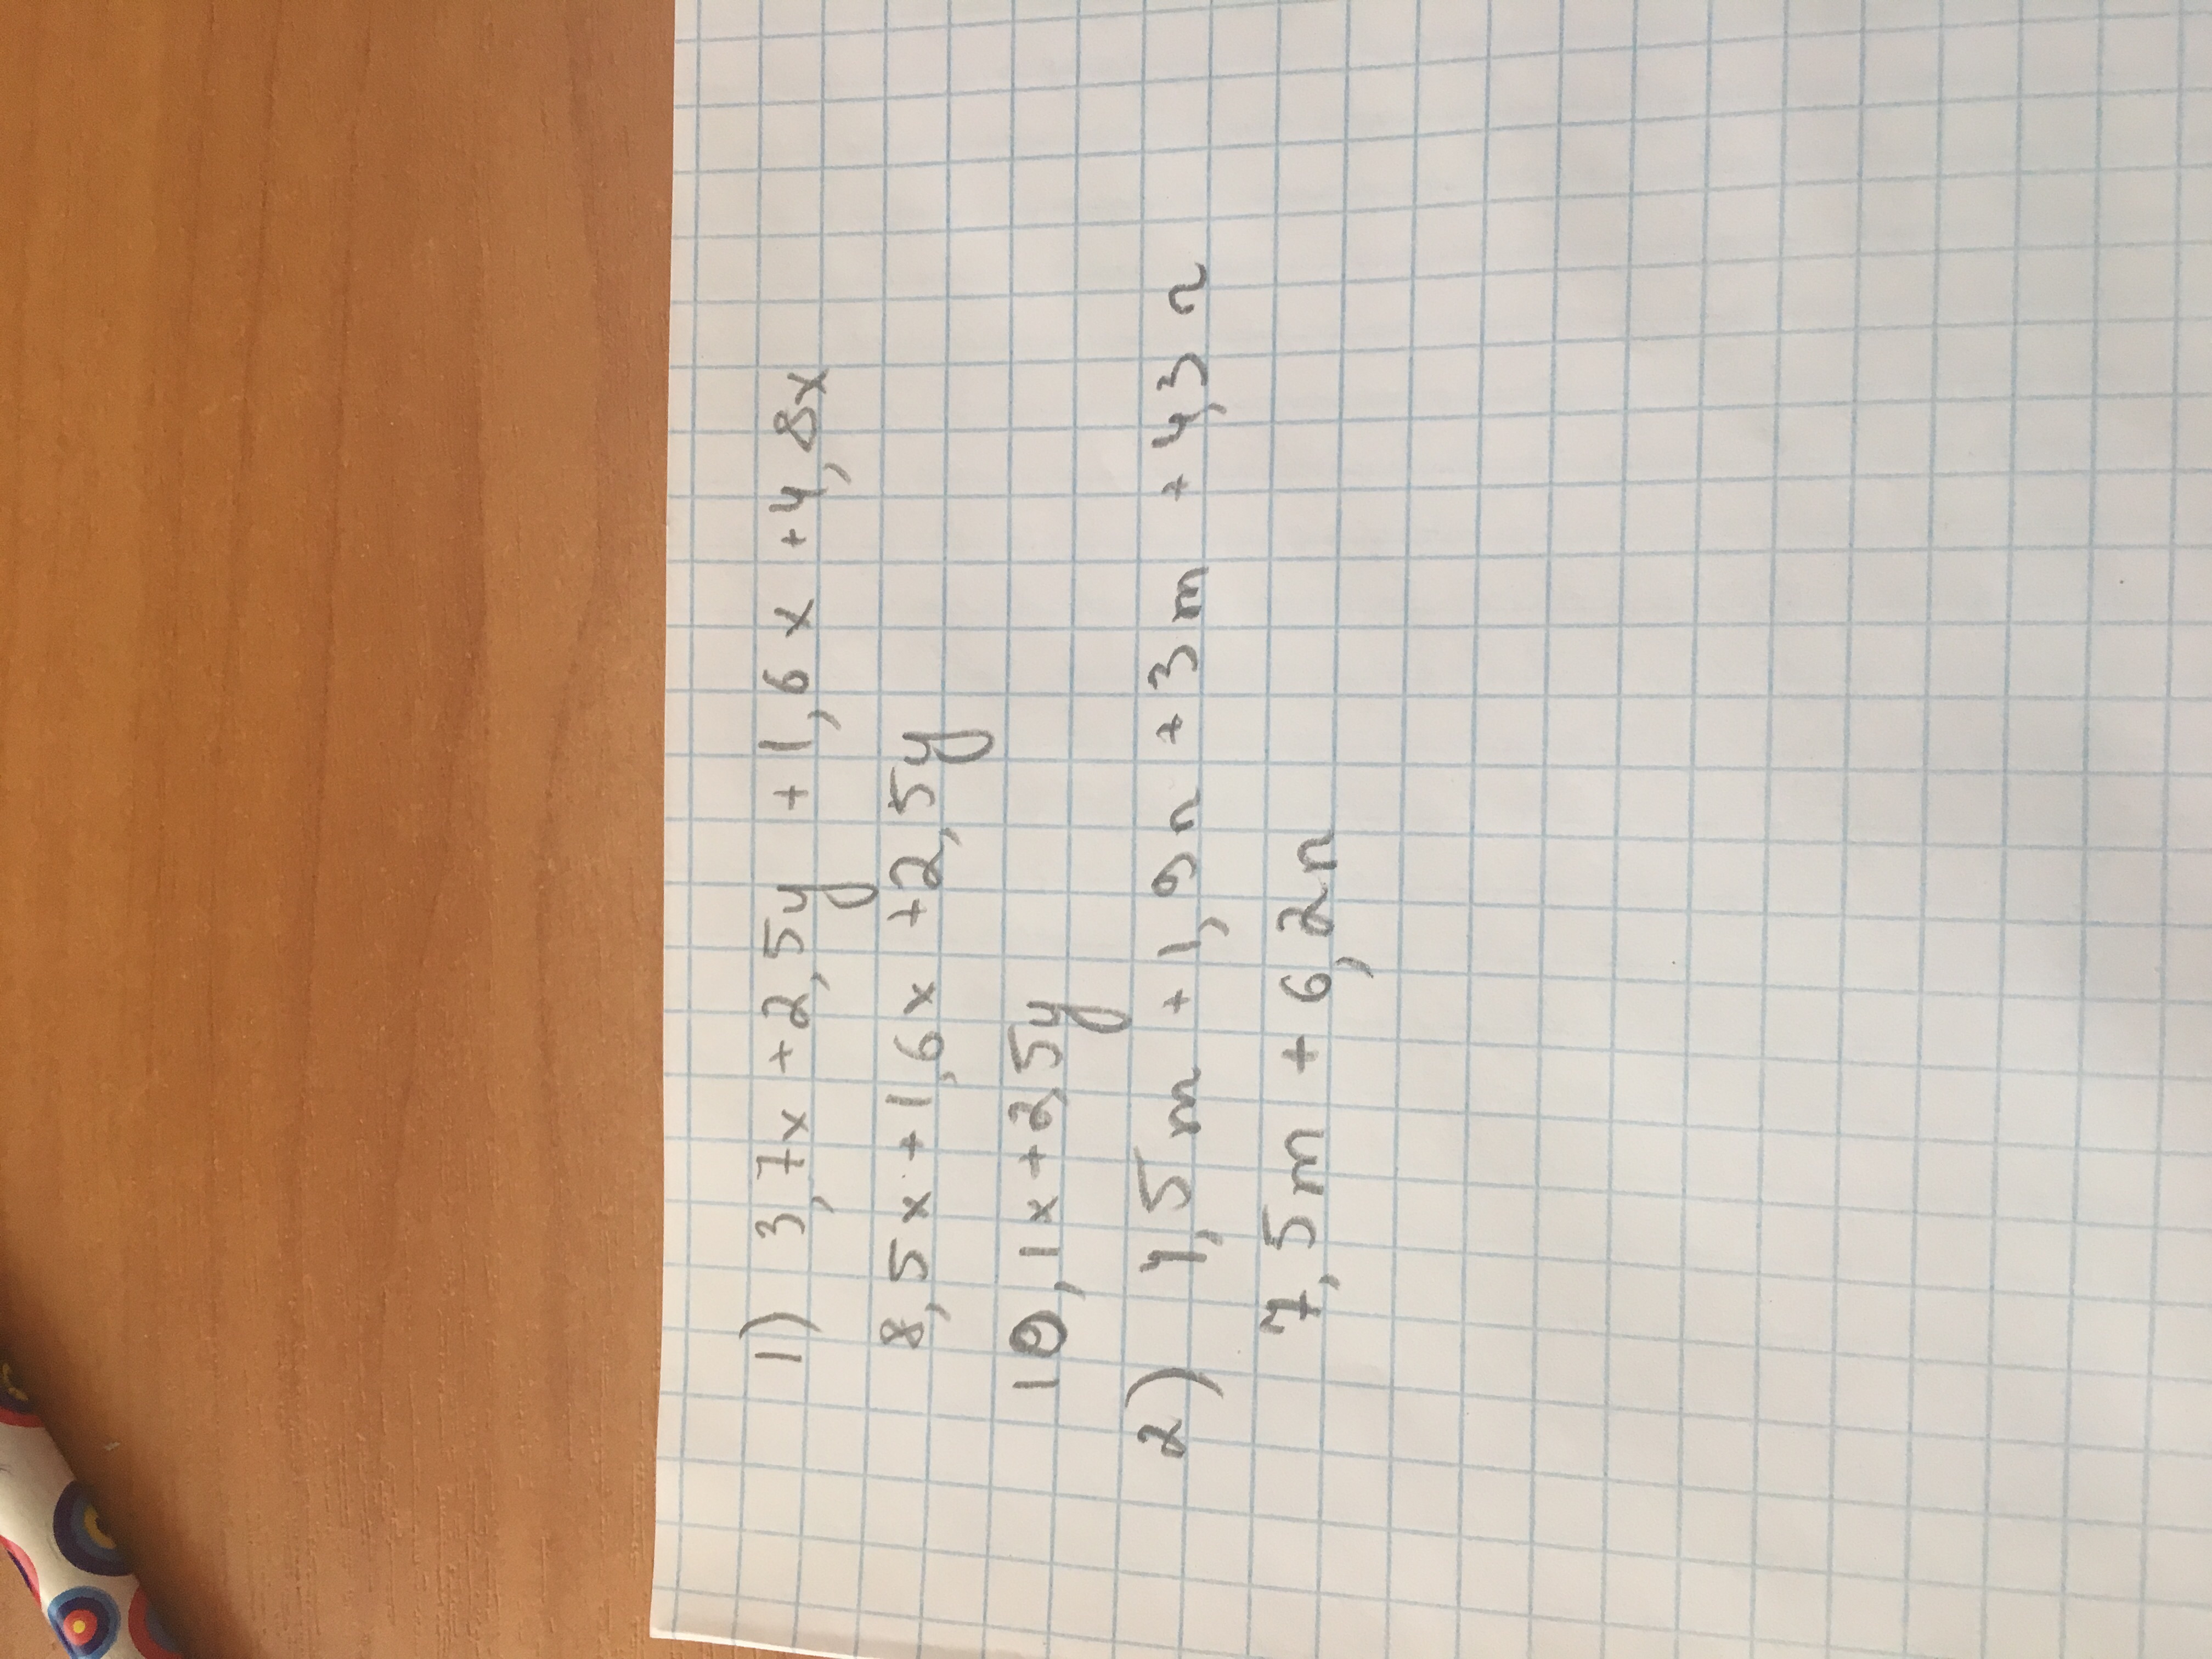 1) 3,7x +2,5y +1,6x +4,8x
8,5x +1,6x +2,5y
10,1x +2,5y
2) 4,5m +1,9n +3m +4,3n
7,5m + 6,2n